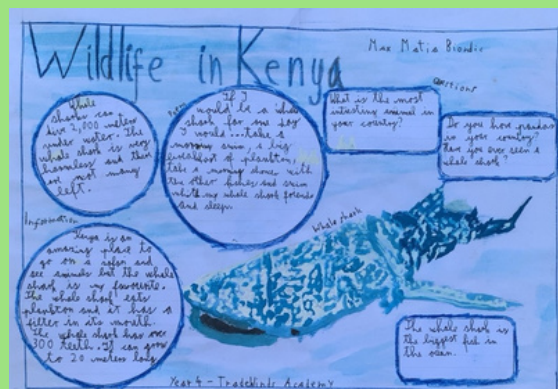 Wildlife in Kenya
Max Matia Biondic
Whale
sharks can
dive 2,000 meters
under water. The
whale shark is very
harmless and there
are not many
left.
Poem
If I
would be a whale
shark for one day
I would...take a
morning swim, a big
breakfast of plankton,
take a morning dance with
the other fishes and swim
with my whale shark friends
and sleep.
Questions
What is the most
intresting animal in
your country?
Do you have pandas
in your country?
Have you ever seen a
whale shark?
Information
Kenya is an
amazing place to
go on a safari and
see animals but the whale
shark is my favourite.
The whale shark eats
plankton and it has a
filter in its mouth.
The whale shark has over
300 teeth. It can grow
to 20 meters long
Whale shark
The whale shark is
the biggest fish in
the ocean.
Year 4 - Tradewinds Academy